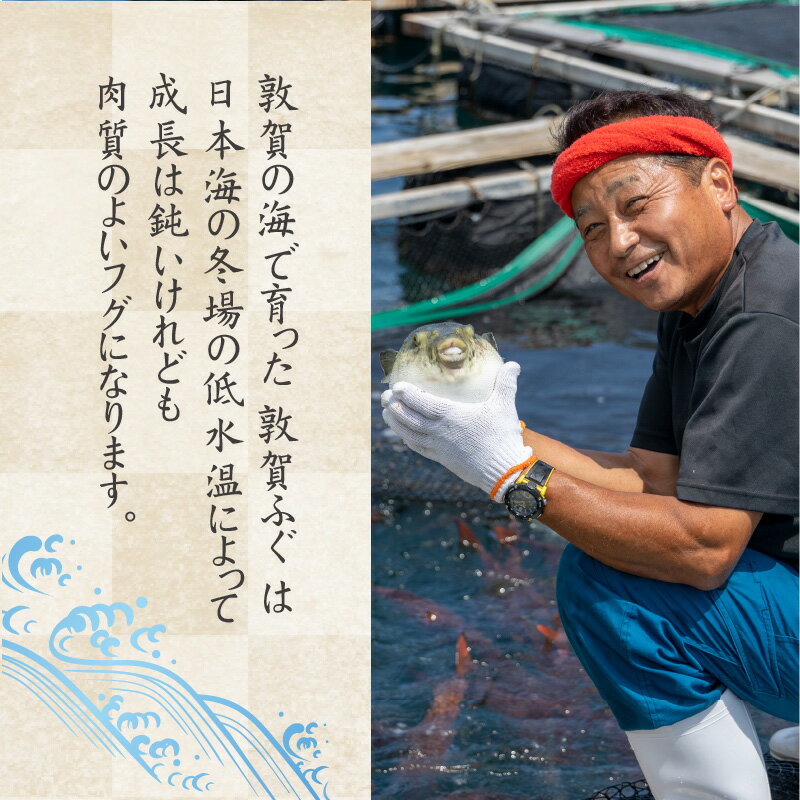 敦賀の海で育った 敦賀ふぐ は
日本海の冬場の低水温によって
成長は鈍いけれども
肉質のよいフグになります。